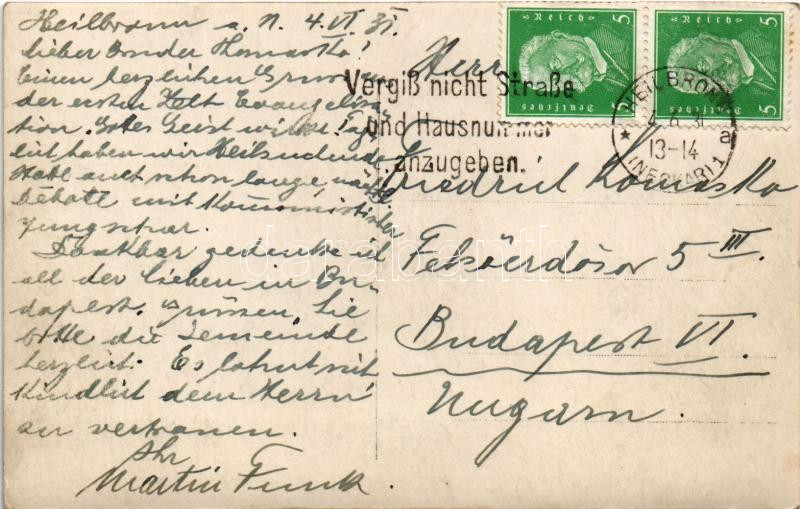 Heilbronn a. N. 4. VI. 31.
Lieber Bruder Homaska!
Einen herzlichen Gruss
der ersten Zelt Evangelisa-
tion. Gottes Geist wirkt. Täg-
lich haben wir Heilsuchende
Hatte auch schon lange
debatte mit Kommunistischer
Jungschar.
Dankbar gedenke ich
all der lieben in Bu-
dapest. Grüssen Sie
bitte die Gemeinde
herzlich. Es lohnt sich
kindlich dem Herrn
zu vertrauen.
Ihr
Martin Funk
Reich
5
Deutsches
Reich
5
Deutsches
Vergiß nicht Straße
und Hausnummer
anzugeben.
HEILBRONN
4.6.31
13-14
a
(NECKAR) 1
Herrn
Friedrich Homaska
Felsőerdősor 5 III.
Budapest VI.
Ungarn.
darabanth